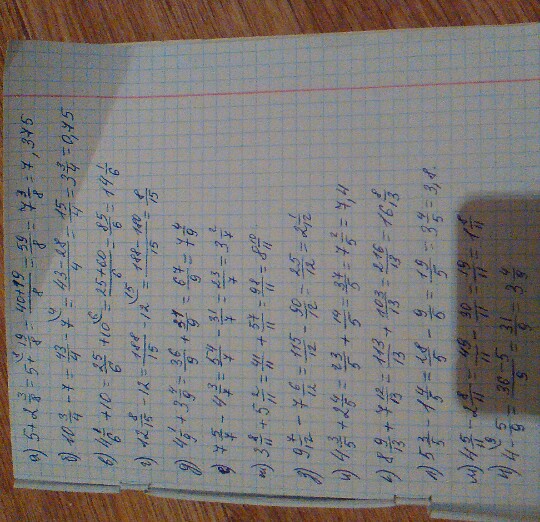 а) 5+2 3/8 = 5+ 19/8 = 40+19/8 = 59/8 = 7 3/8 = 7,375
б) 10 3/4 - 7 = 43/4 - 7 = 43-28/4 = 15/4 = 3 3/4 = 0,75
в) 4 1/6 + 10 = 25/6 + 10 = 25+60/6 = 85/6 = 14 1/6
г) 12 8/15 - 12 = 188/15 - 12 = 188-180/15 = 8/15
д) 4 1/9 + 3 = 36/9 + 31/9 = 67/9 = 7 4/9
е) 7 5/7 - 4 3/7 = 54/7 - 31/7 = 23/7 = 3 2/7
ж) 3 8/11 + 5 2/11 = 41/11 + 57/11 = 98/11 = 8 10/11
з) 9 7/12 - 7 6/12 = 115/12 - 90/12 = 25/12 = 2 1/12
и) 4 3/5 + 2 4/5 = 23/5 + 14/5 = 37/5 = 7 2/5 = 7,4
к) 8 9/13 + 7 12/13 = 113/13 + 103/13 = 216/13 = 16 8/13
л) 5 3/5 - 1 4/5 = 28/5 - 9/5 = 19/5 = 3 4/5 = 3,8
м) 4 5/11 - 2 8/11 = 49/11 - 30/11 = 19/11 = 1 8/11
н) 4 - 5/9 = 36-5/9 = 31/9 = 3 4/9